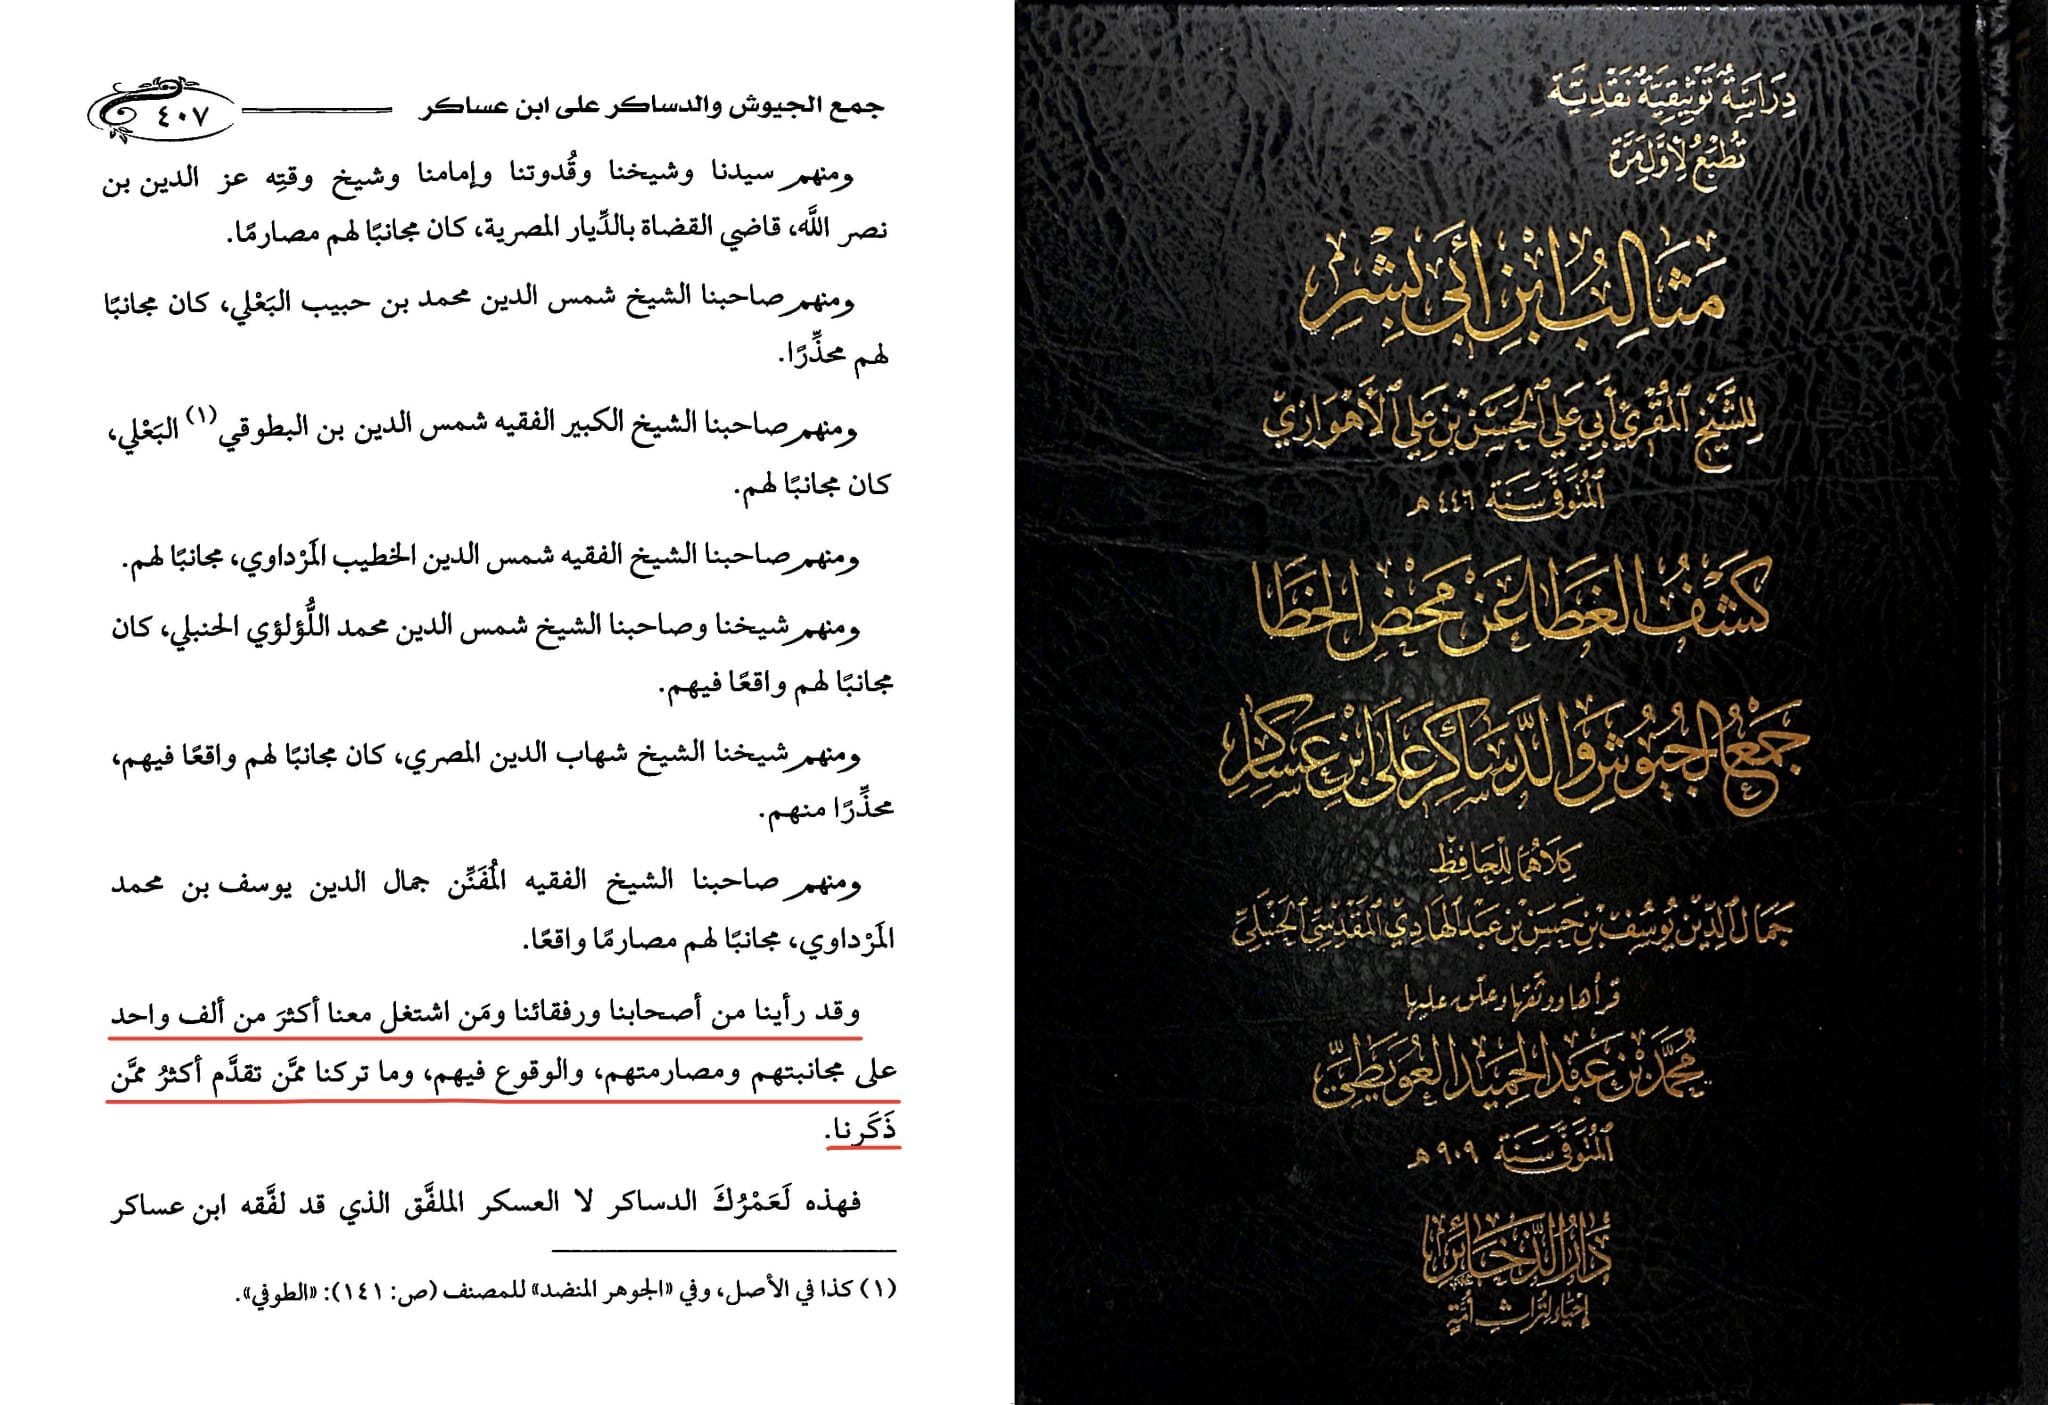 جمع الجيوش والدساكر على ابن عساكر
٤٠٧
ومنهم سيدنا وشيخنا وقُدوتنا وإمامنا وشيخ وقتِه عز الدين بن
نصر اللَّه، قاضي القضاة بالدِّيار المصرية، كان مجانبًا لهم مصارمًا.
ومنهم صاحبنا الشيخ شمس الدين محمد بن حبيب البَعْلي، كان مجانبًا
لهم محذِّرًا.
ومنهم صاحبنا الشيخ الكبير الفقيه شمس الدين بن البطوقي(١) البَعْلي،
كان مجانبًا لهم.
ومنهم صاحبنا الشيخ الفقيه شمس الدين الخطيب المَرْداوي، مجانبًا لهم.
ومنهم شيخنا وصاحبنا الشيخ شمس الدين محمد اللُّؤلؤي الحنبلي، كان
مجانبًا لهم واقعًا فيهم.
ومنهم شيخنا الشيخ شهاب الدين المصري، كان مجانبًا لهم واقعًا فيهم،
محذِّرًا منهم.
ومنهم صاحبنا الشيخ الفقيه المُفَنِّن جمال الدين يوسف بن محمد
المَرْداوي، مجانبًا لهم مصارمًا واقعًا.
وقد رأينا من أصحابنا ورفقائنا ومَن اشتغل معنا أكثرَ من ألف واحد
على مجانبتهم ومصارمتهم، والوقوع فيهم، وما تركنا ممَّن تقدَّم أكثرُ ممَّن
ذَكَرنا.
فهذه لَعَمْرُكَ الدساكر لا العسكر الملفَّق الذي قد لفَّقه ابن عساكر
(١) كذا في الأصل، وفي «الجوهر المنضد» للمصنف (ص: ١٤١): «الطوفي».
دِرَاسَةٌ تَوْثِيقِيَّةٌ نَقْدِيَّة
تُطْبَعُ لِأَوَّلِ مَرَّة
مَثَالِبُ ابْنِ أَبِي بِشْرٍ
لِلشَّيْخِ المُقْرِئِ أَبِي عَلِي الحَسَنِ بْنِ عَلِي الأَهْوَازِيّ
المُتَوَفَّى سَنَة ٤٤٦ هـ
كَشْفُ الغَطَا عَنْ مَحْضِ الخَطَا
جَمْعُ الجُيُوشِ وَالدَّسَاكِرِ عَلَى ابْنِ عَسَاكِرِ
كِلَاهُمَا لِلْحَافِظِ
جَمَال الدِّيْن يُوسُف بْنِ حَسَن بْنِ عَبْدِ الهَادِي المَقْدِسِي الحَنْبَلِيّ
قرأها ووثقها وعلق عليها
مُحَمَّد بْن عَبْد الحَمِيد العُوَيْطِيّ
المُتَوَفَّى سَنَة ٩٠٩ هـ
دَارُ الذَّخَائِر
إحْيَاء لِتُرَاثِ أُمَّة